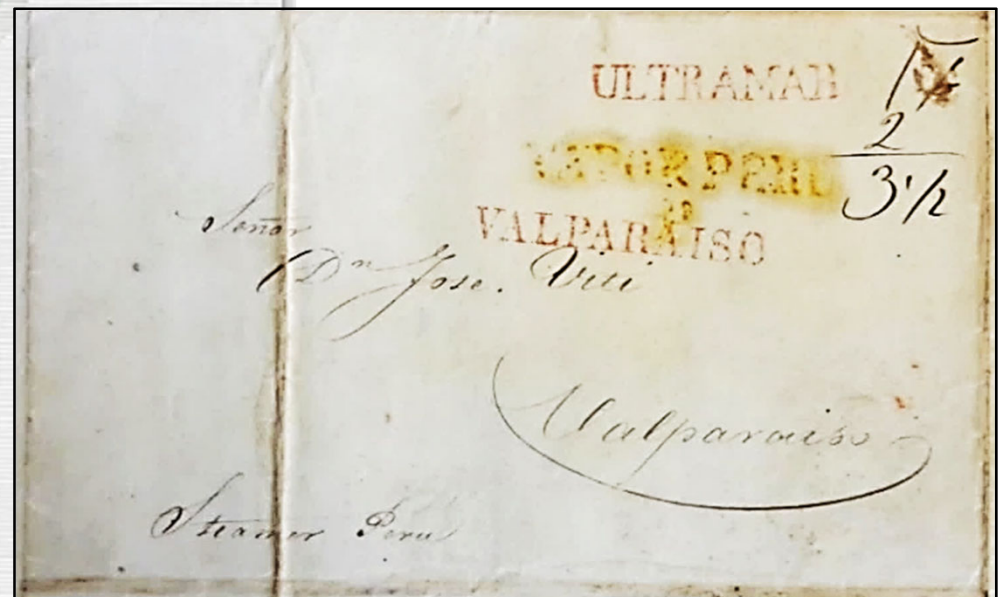 ULTRAMAR
2
VAPOR PERU
3 1/2
VALPARAISO
Señor
Dn Jose. Viti
Valparaiso
Steamer Peru